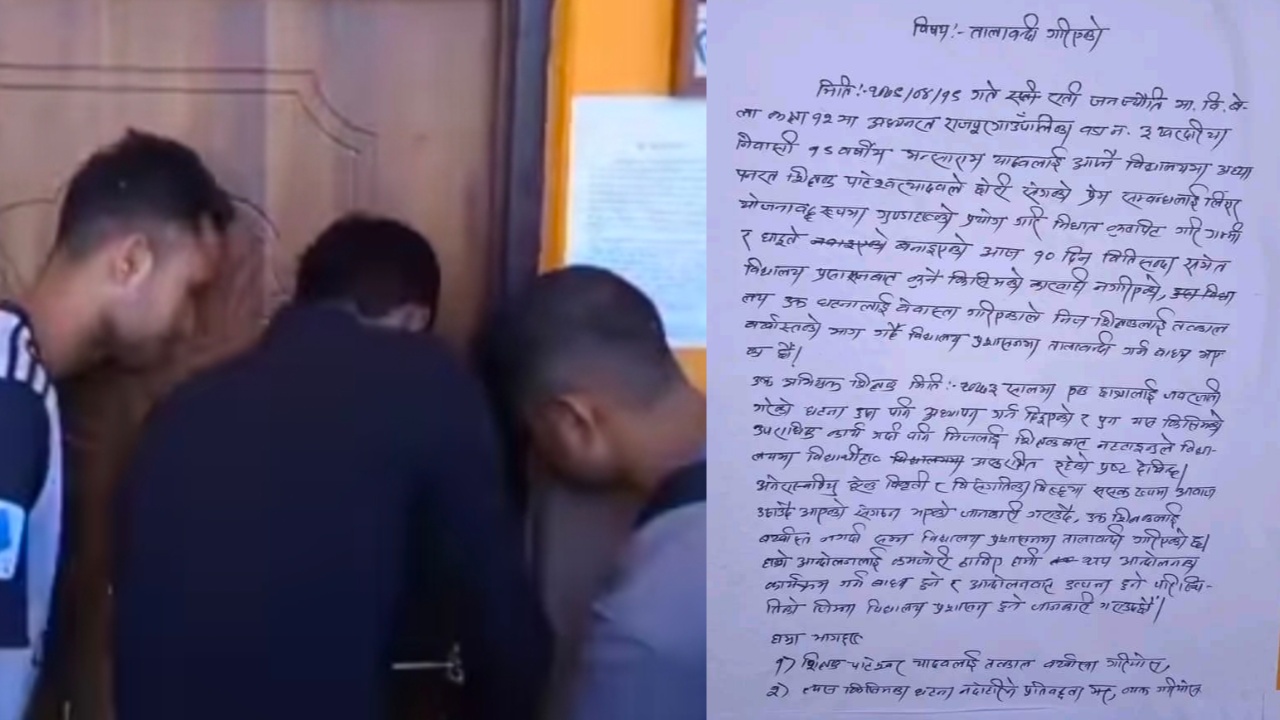 विषय:- तालाबन्दी गरिएको
मिति:- २०७९/०४/१९ गते श्री जनज्योति मा. वि. बे-
ला कक्षा १२ मा अध्यनरत राजपुर गाउँपालिका वडा न. ३
निवासी १९ वर्षीय मन्साराम यादवलाई आफ्नै विद्यालयमा अध्या
पनरत शिक्षक पाटेश्वर यादवले छोरी संगको प्रेम सम्बन्धलाई लिएर
योजनावद्ध रुपमा गुण्डाहरुको प्रयोग गरि निघात कुटपिट गरि गम्भी
र घाइते बनाइएको आज १० दिन बितिसक्दा समेत
विद्यालय प्रशासनबाट कुनै किसिमको कारवाही नगरिएको,
उक्त घटनालाई वेवास्ता गरिएकाले निज शिक्षकलाई तत्काल
बर्खास्तको माग गर्दै विद्यालय प्रशासनमा तालाबन्दी गर्न बाध्य भए
का छौं।
उक्त शिक्षक मिति:- २०७३ सालमा एक छात्रालाई जवरजस्ती
गरेको घटना पनि अध्यापन गर्न दिइएको र पुन यस किसिमको
अपराधिक कार्य गर्दा पनि निजलाई शिक्षकबाट नहटाइनुले विद्या-
लयमा विद्यार्थीहरु असुरक्षित रहेको प्रष्ट देखिन्छ।
र विसंगतिका विरुद्धमा ससक्त रुपमा आवाज
उठाउँदै आएको संगठन भएको जानकारी गराउदै, उक्त शिक्षकलाई
बर्खास्त नगर्दा सम्म विद्यालय प्रशासनमा तालाबन्दी गरिएको छ।
हाम्रो आन्दोलनलाई कमजोरी ठानिए हामी थप आन्दोलनका
कार्यक्रम गर्न बाध्य हुने र आन्दोलनबाट उत्पन्न हुने परिस्थि-
तिको जिम्मा विद्यालय प्रशासन हुने जानकारी गराउदछौं।
हाम्रा मागहरु
१) शिक्षक पाटेश्वर यादवलाई तत्काल बर्खास्त गरियोस्,
२) त्यस किसिमका घटना नदोहोरिने प्रतिवद्धता व्यक्त गरियोस्